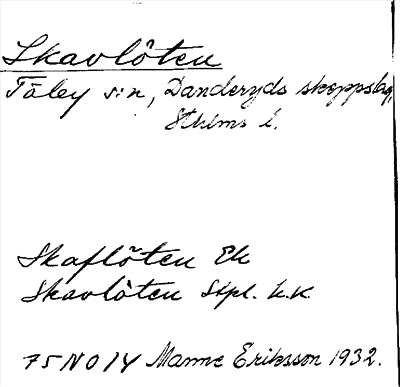 Skavlöten
Täby s:n, Danderyds skeppslag,
Sthlms l.
Skaflöten Ek
Skavlöten Stpl. k.k.
75 NO 14 Manne Eriksson 1932.